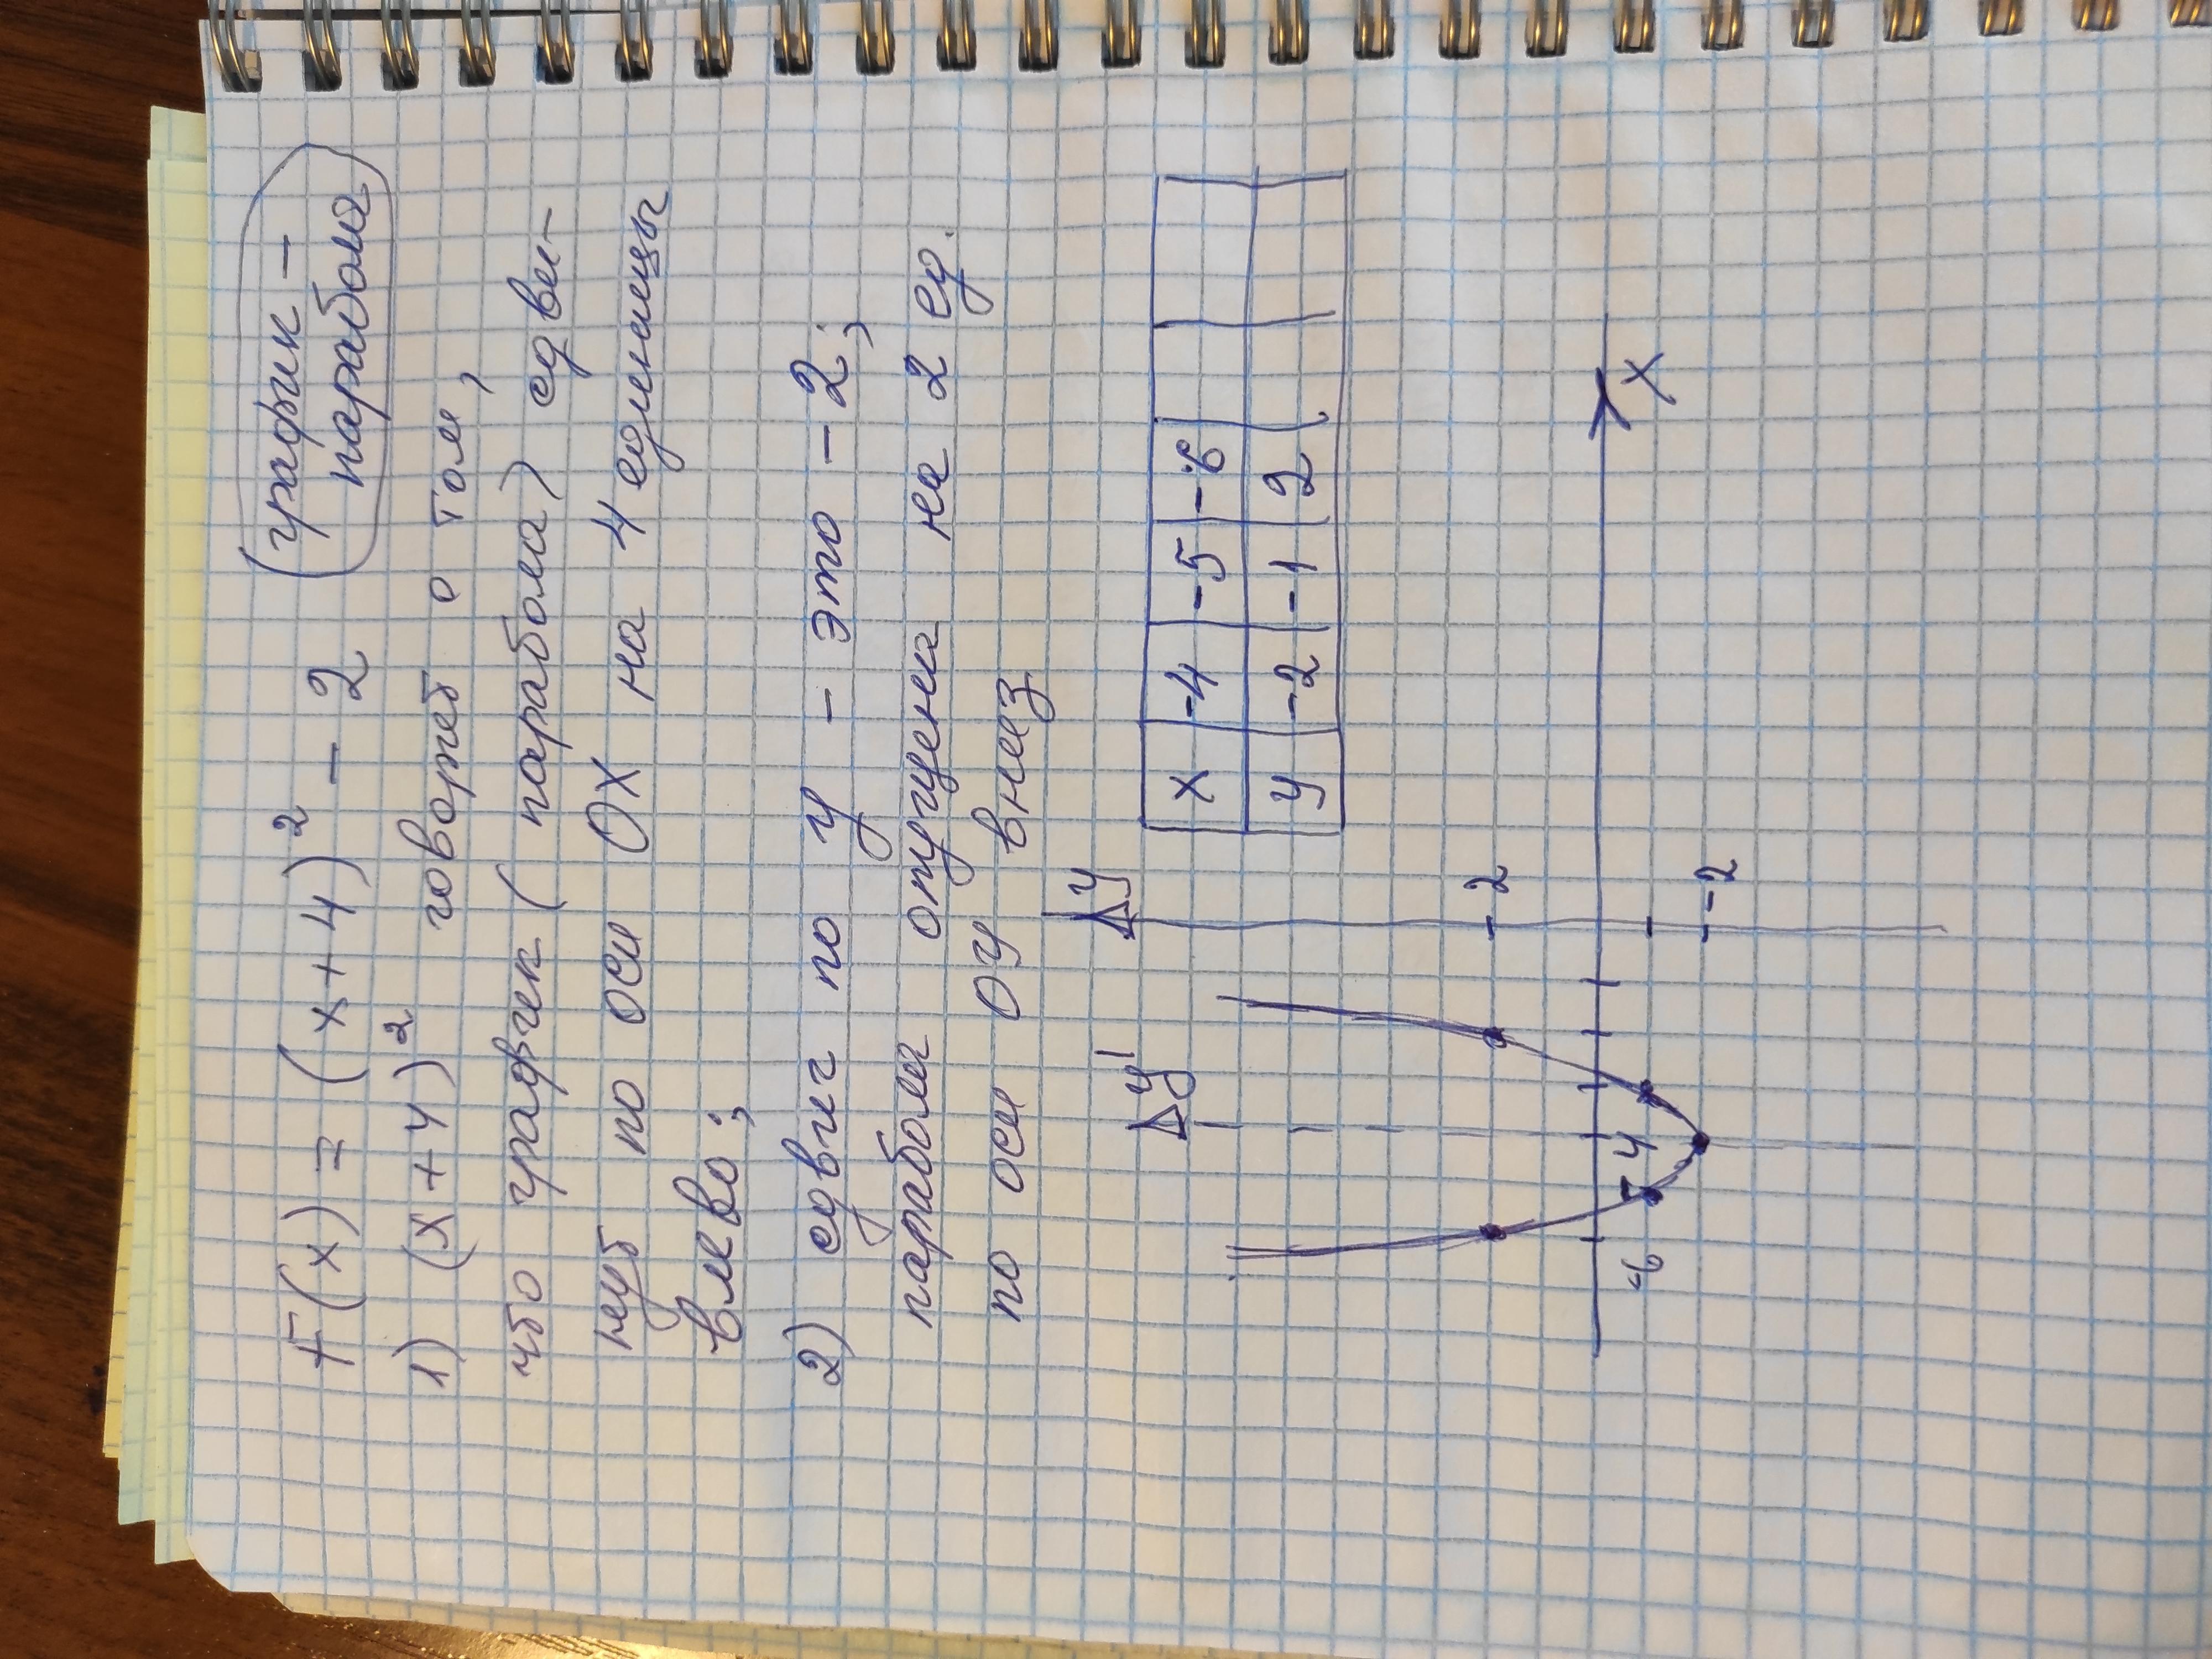 F(x) = (x+4)² - 2 (график - парабола)
1) (x+4)² говорит о том,
что график (парабола) сдви-
нут по оси OX на 4 единицы
влево;
2) сдвиг по y - это -2;
парабола опущена на 2 ед.
по оси OY вниз
x -4 -5 -6
y -2 -1 2
y' y
2
-6 -4 x
-2